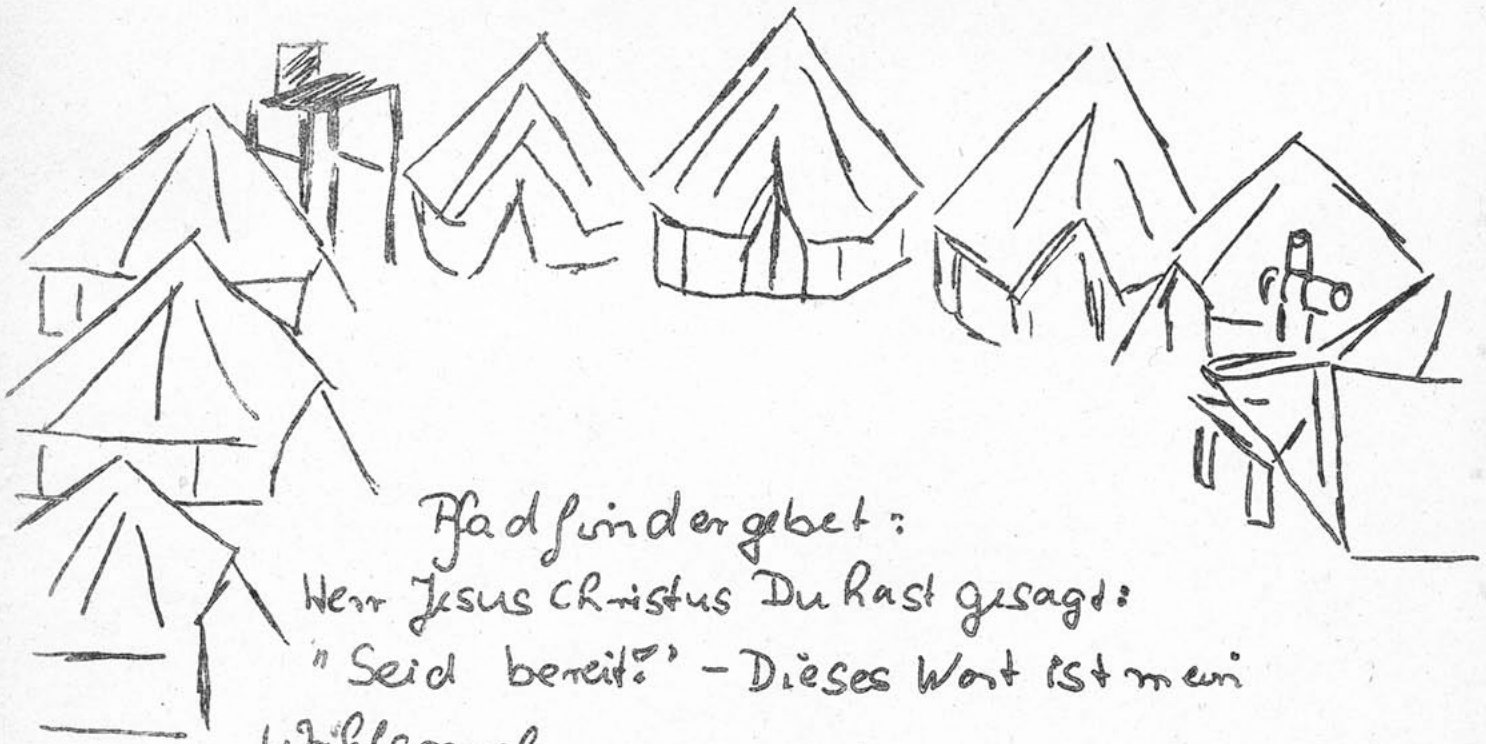 Pfadfindergebet:
Herr Jesus Christus Du hast gesagt:
"Seid bereit!" - Dieses Wort ist mein
Wahlspruch